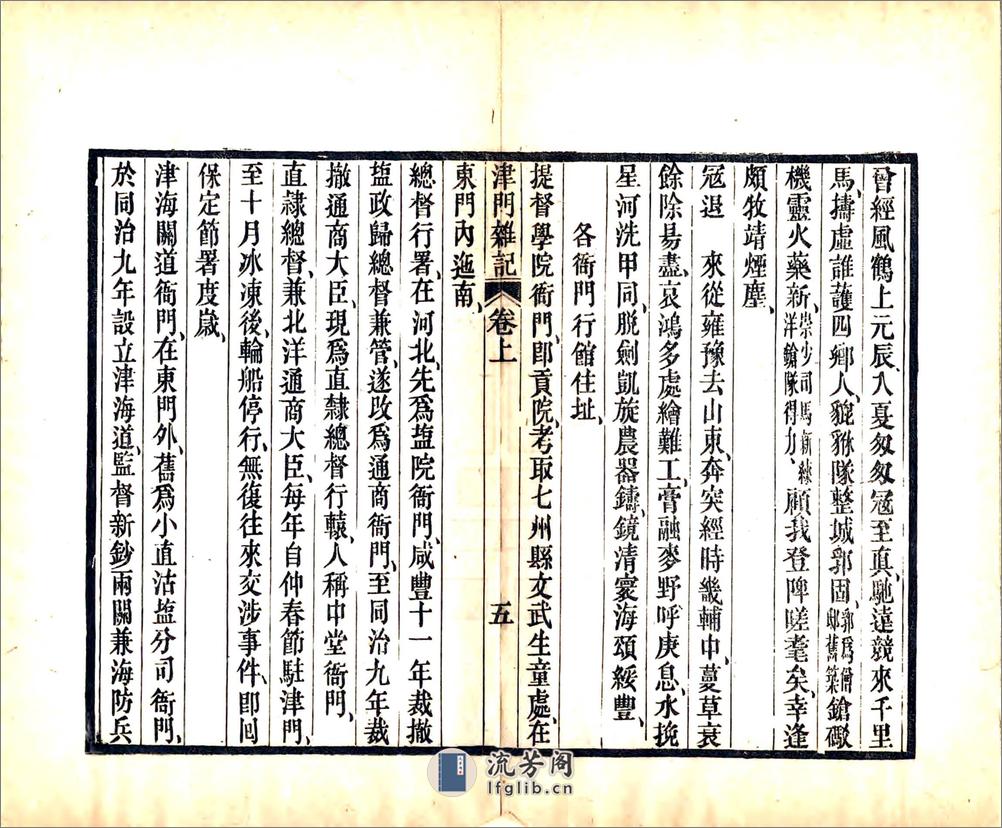 曾經風鶴上元辰、入夏匆匆寇至真、馳逹競來千里
馬、擣虛誰護四鄉人、貔貅隊整城郭固、郭為僧邸舊築鎗礮
機靈火藥新、崇少司馬新練洋鎗隊得力、顧我登陴嗟耄矣、幸逢
頗牧靖煙塵、
寇退　來從雍豫去山東、奔突經時畿輔中、蔓草衰
餘除易盡、哀鴻多處繪難工、膏融麥野呼庚息、水挽
星河洗甲同、脫劍凱旋農器鑄、鏡清寰海頌綏豐、
各衙門行館住址、
提督學院衙門、即貢院、考取七州縣文武生童處、在
津門雜記　卷上　五
東門內迤南、
總督行署、在河北、先爲塩院衙門、咸豐十一年裁撤
塩政歸總督兼管、遂改爲通商衙門、至同治九年裁
撤通商大臣、現爲直隸總督行轅、人稱中堂衙門、
直隸總督、兼北洋通商大臣、每年自仲春節駐津門、
至十月冰凍後、輪船停行、無復往來交涉事件、即回
保定節署度歲、
津海關道衙門、在東門外、舊爲小直沽塩分司衙門、
於同治九年設立津海道、監督新鈔兩關兼海防兵
流芳阁
lfglib.cn